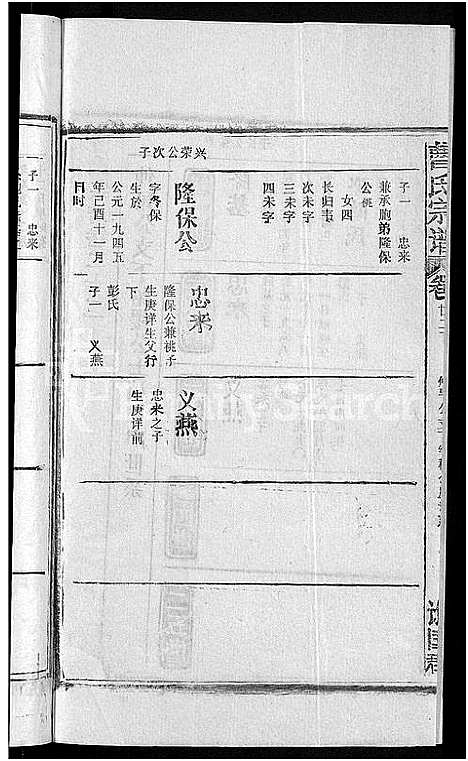 曹氏宗谱
卷廿二
子一 忠来
兼承胞弟隆保
公祧
女四
长归韦
次未字
三未字
四未字
兴荣公次子
隆保公
字冬保
生於
公元一九四五
年己酉十一月
日时
忠来
隆保公兼祧子
生庚详生父行
下
彭氏
子一 义燕
义燕
忠来之子
生庚详前
子一 忠来